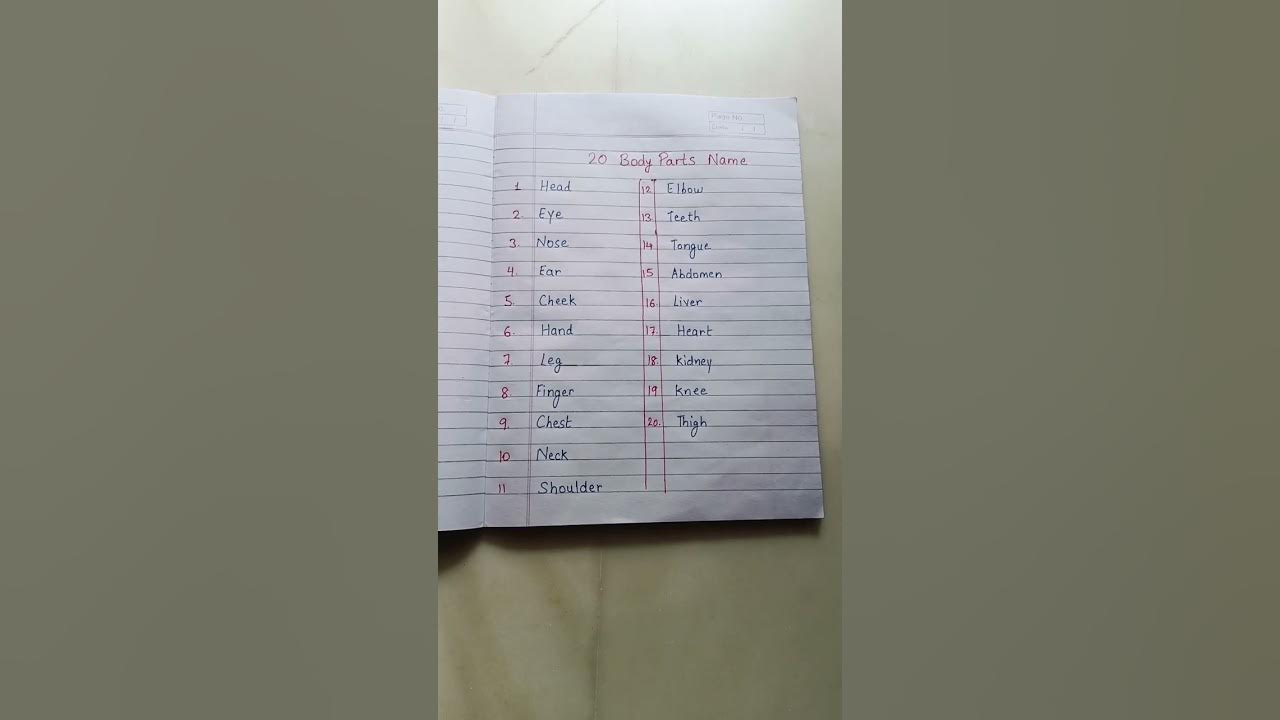 Page No.
Date / /
20 Body Parts Name
1 Head
2. Eye
3. Nose
4. Ear
5. Cheek
6. Hand
7. Leg
8. Finger
9. Chest
10 Neck
11 Shoulder
12 Elbow
13. Teeth
14 Tongue
15 Abdomen
16. Liver
17. Heart
18. Kidney
19 Knee
20. Thigh